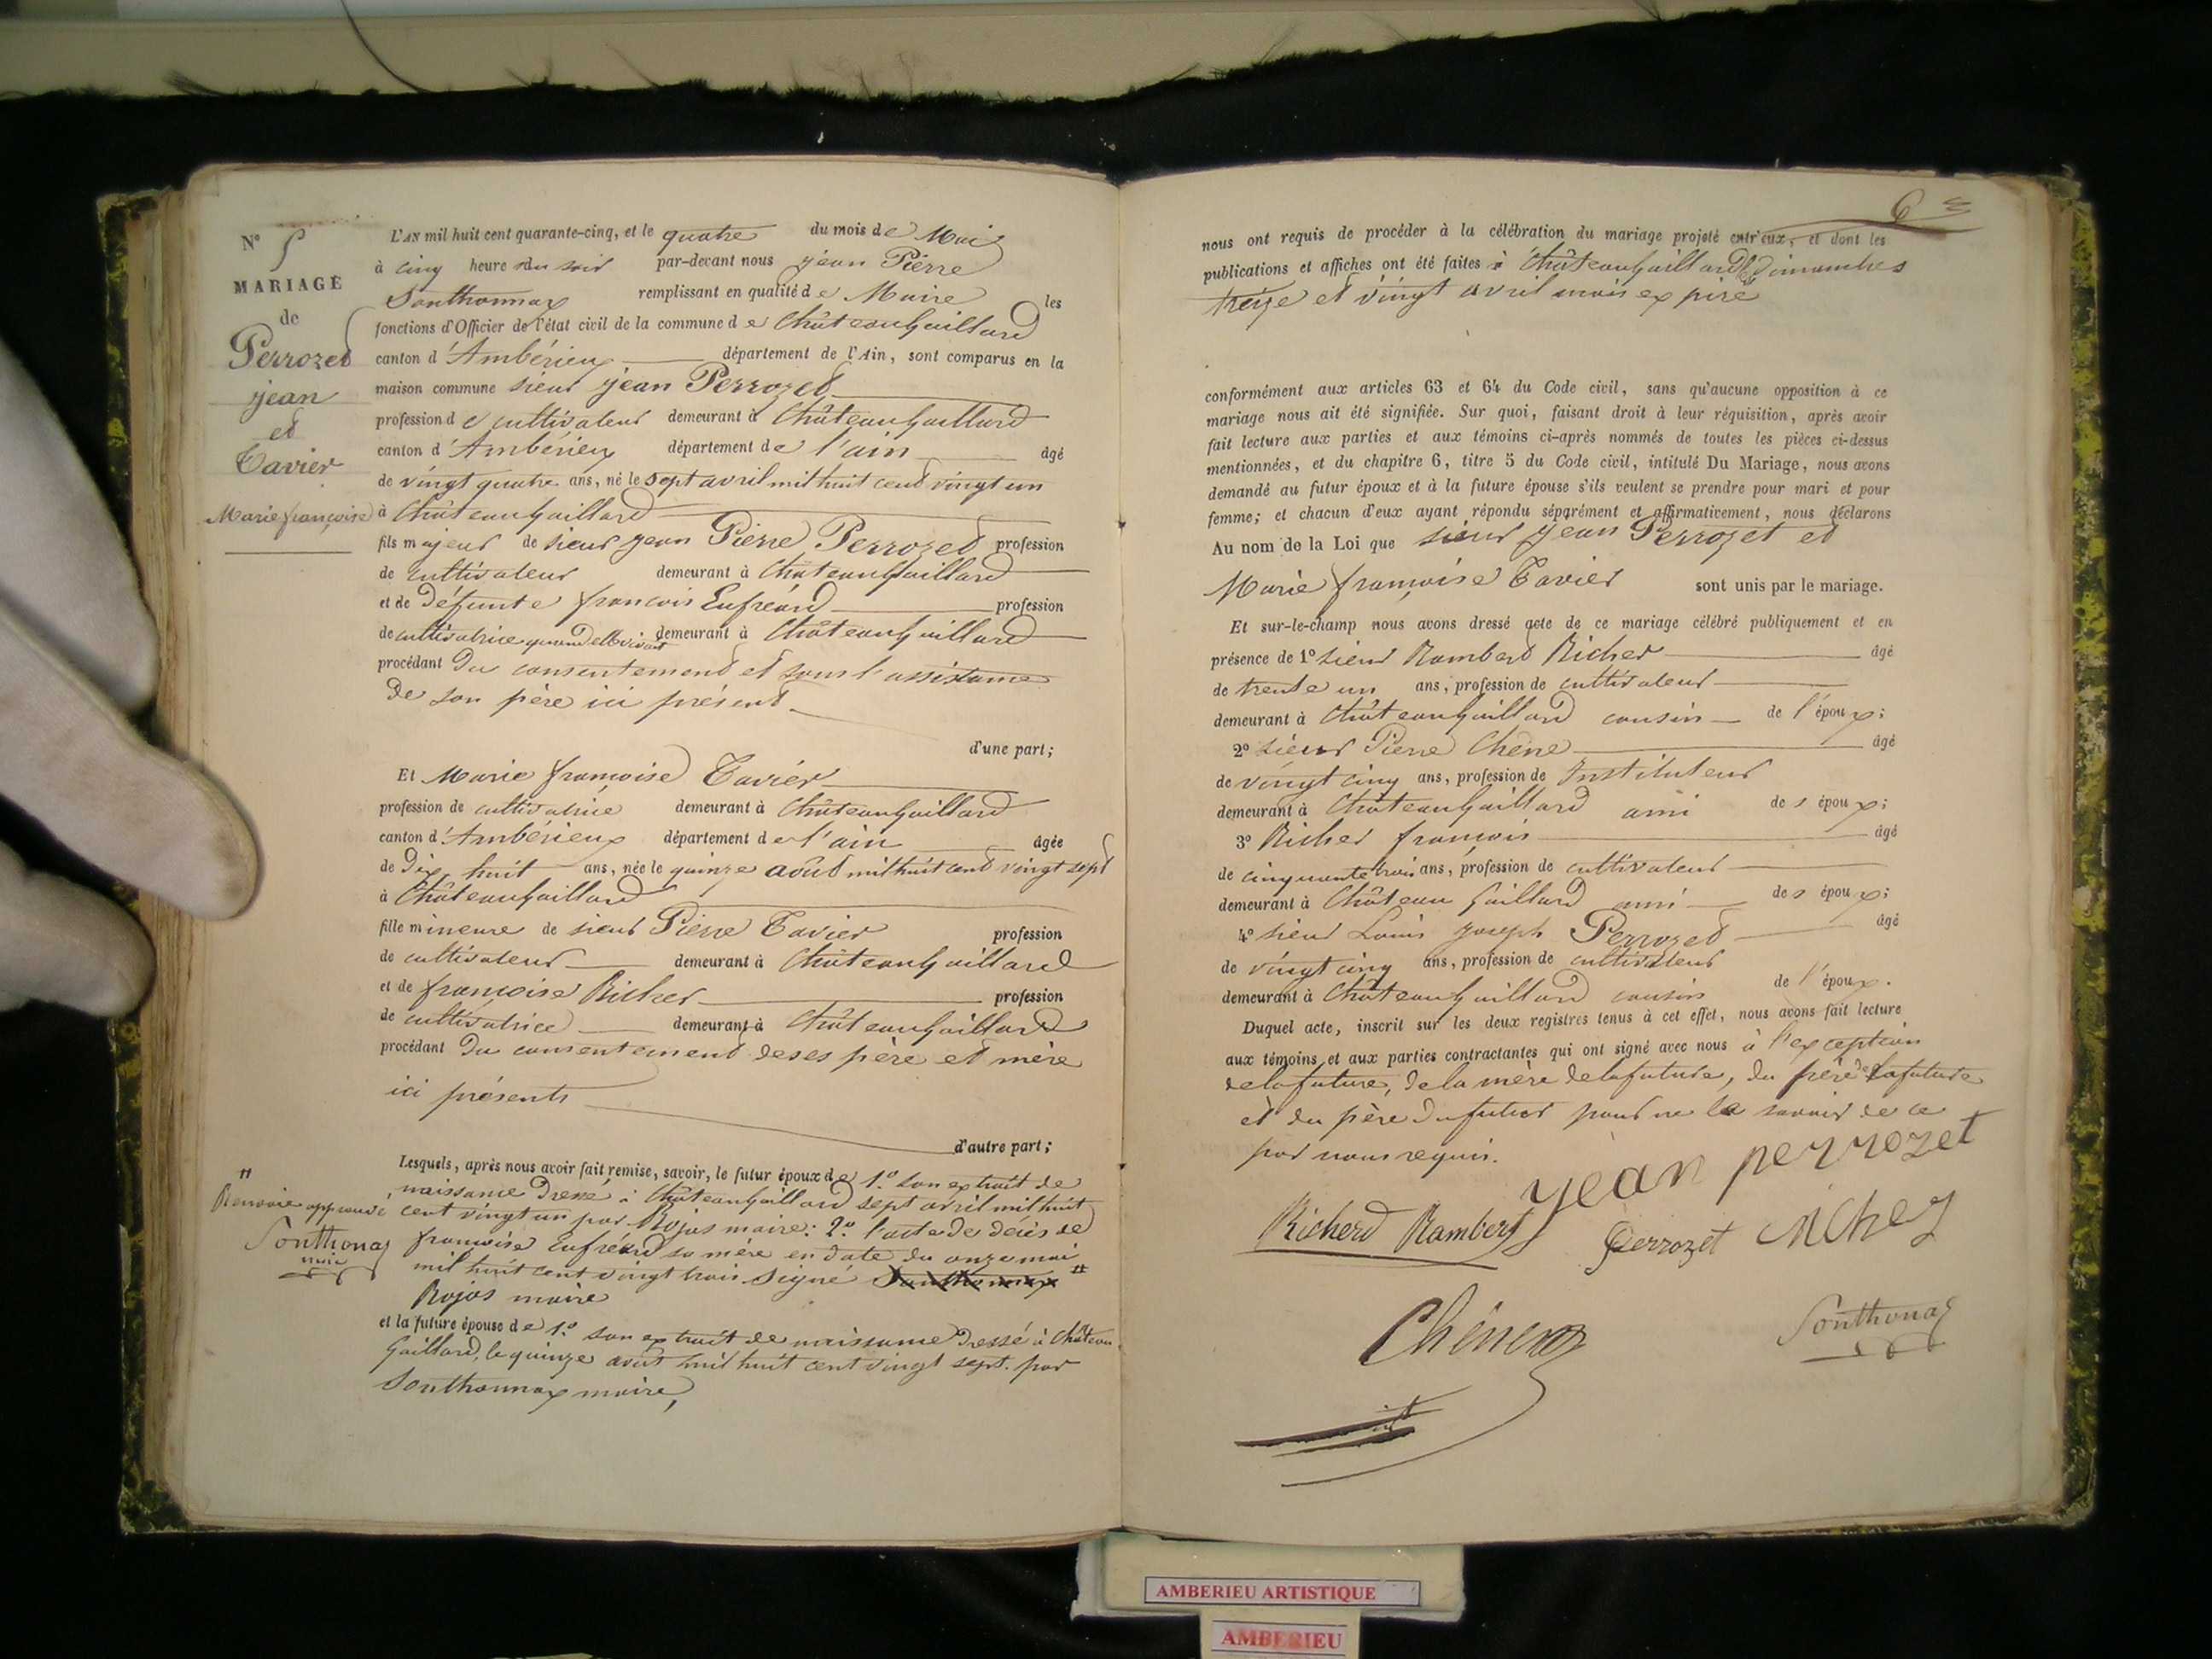 N° 5
MARIAGE
de
Perrozet
jean
et
Tavier
Marie françoise
L'AN mil huit cent quarante-cinq, et le quatre du mois de Mai
à cinq heures du soir par-devant nous jean Pierre
Sonthonnax remplissant en qualité de Maire les
fonctions d'Officier de l'état civil de la commune de ChâteauGaillard
canton d'Ambérieux département de l'Ain, sont comparus en la
maison commune sieur jean Perrozet
profession de cultivateur demeurant à ChâteauGaillard
canton d'Ambérieux département de l'ain âgé
de vingt quatre ans, né le sept avril mil huit cent vingt un
à ChâteauGaillard
fils majeur de sieur jean Pierre Perrozet profession
de cultivateur demeurant à ChâteauGaillard
et de Défunte francois Eufréard profession
de cultivatrice quand elle vivait demeurant à ChâteauGaillard
procédant du consentement et sous l'assistance
de son père ici présent
d'une part;
Et Marie françoise Tavier
profession de cultivatrice demeurant à ChâteauGaillard
canton d'Ambérieux département de l'ain âgée
de dix huit ans, née le quinze août mil huit cent vingt sept
à ChâteauGaillard
fille mineure de sieur Pierre Tavier profession
de cultivateur demeurant à ChâteauGaillard
et de françoise Richer profession
de cultivatrice demeurant à ChâteauGaillard
procédant du consentement de ses père et mère
ici présents
d'autre part;
Lesquels, après nous avoir fait remise, savoir, le futur époux de 1.° son extrait de
naissance Dressé à ChâteauGaillard sept avril mil huit
cent vingt un par Rojas maire: 2.° l'acte de décès de
françoise Eufréard sa mère en date du onze mai
mil huit cent vingt trois signé Santhonnax "
Rojas maire
" Renvoie approuvé
Sonthonax
maire
et la future épouse de 1.° son extrait de naissance Dressé à Château
Gaillard, le quinze août mil huit cent vingt sept. par
Sonthonnax maire,
6
nous ont requis de procéder à la célébration du mariage projeté entr'eux, et dont les
publications et affiches ont été faites à ChâteauGaillard les Dimanches
treize et vingt avril mois expiré
conformément aux articles 63 et 64 du Code civil, sans qu'aucune opposition à ce
mariage nous ait été signifiée. Sur quoi, faisant droit à leur réquisition, après avoir
fait lecture aux parties et aux témoins ci-après nommés de toutes les pièces ci-dessus
mentionnées, et du chapitre 6, titre 5 du Code civil, intitulé Du Mariage, nous avons
demandé au futur époux et à la future épouse s'ils veulent se prendre pour mari et pour
femme; et chacun d'eux ayant répondu séparément et affirmativement, nous déclarons
Au nom de la Loi que sieur Jean Perrozet et
Marie françoise Tavier sont unis par le mariage.
Et sur-le-champ nous avons dressé acte de ce mariage célébré publiquement et en
présence de 1° sieur Rambert Richer âgé
de trente un ans, profession de cultivateur
demeurant à ChâteauGaillard cousin de l'époux;
2° sieur Pierre Chêne âgé
de vingt cinq ans, profession de Instituteur
demeurant à ChâteauGaillard ami des époux;
3° Richer françois âgé
de cinquante trois ans, profession de cultivateur
demeurant à Château Gaillard ami des époux;
4° sieur Louis joseph Perrozet âgé
de vingt cinq ans, profession de cultivateur
demeurant à ChâteauGaillard cousin de l'époux.
Duquel acte, inscrit sur les deux registres tenus à cet effet, nous avons fait lecture
aux témoins et aux parties contractantes qui ont signé avec nous à l'exception
de la future, de la mère de la future, du père de la future
et du père du futur pour ne le savoir de ce
par nous requis.
jean perrozet
Richerd Rambert Perrozet Richer
Chêne
Sonthonax
AMBERIEU ARTISTIQUE
AMBERIEU